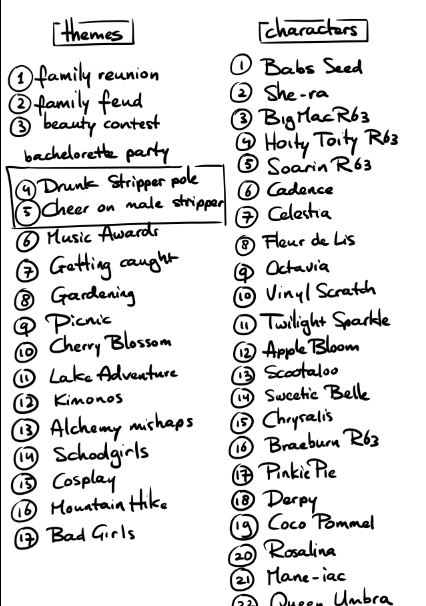 themes
1 family reunion
2 family feud
3 beauty contest
bachelorette party
4 Drunk Stripper pole
5 Cheer on male stripper
6 Music Awards
7 Getting caught
8 Gardening
9 Picnic
10 Cherry Blossom
11 Lake Adventure
12 Kimonos
13 Alchemy mishaps
14 Schoolgirls
15 Cosplay
16 Mountain Hike
17 Bad Girls
characters
1 Babs Seed
2 She-ra
3 Big Mac R63
4 Hoity Toity R63
5 Soarin R63
6 Cadence
7 Celestia
8 Fleur de Lis
9 Octavia
10 Vinyl Scratch
11 Twilight Sparkle
12 Apple Bloom
13 Scootaloo
14 Sweetie Belle
15 Chrysalis
16 Braeburn R63
17 Pinkie Pie
18 Derpy
19 Coco Pommel
20 Rosalina
21 Mane-iac
22 Queen Umbra